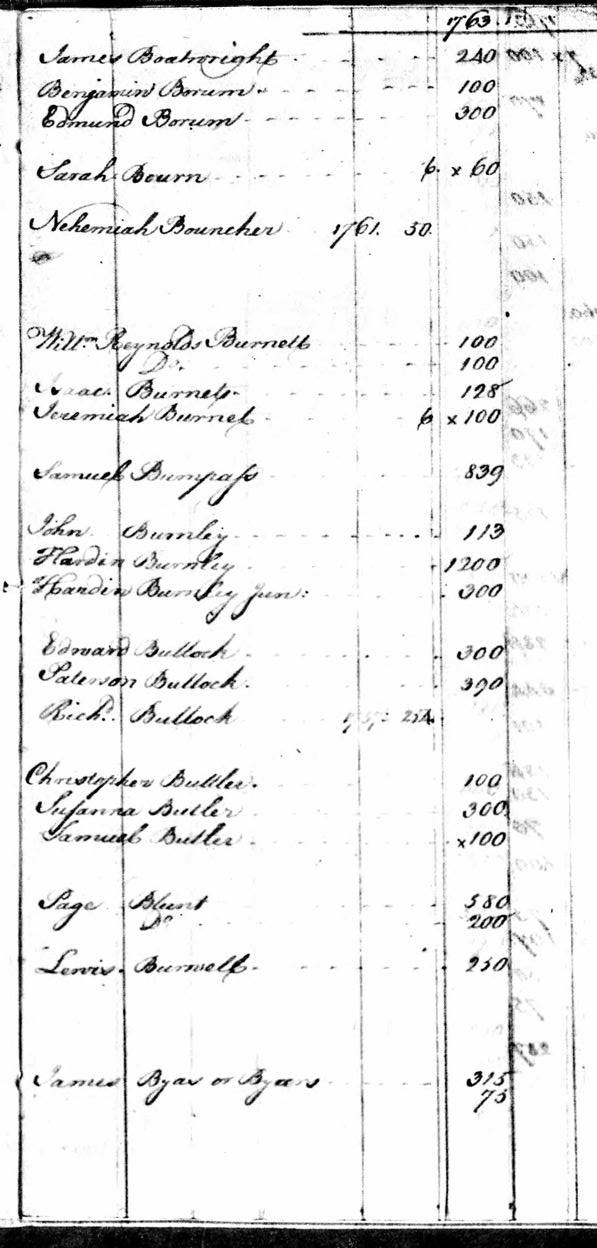 1763.
James Boatwright 240
Benjamin Borum 100
Edmund Borum 300
Sarah Bourn 6. x 60
Nehemiah Bouncher 1761. 50.
Willm. Reynolds Burnett 100
Do. 100
Isaac Burnett 128
Jeremiah Burnet 6 x 100
Samuel Bumpass 839
John Burnley 113
Hardin Burnley 1200
Hardin Burnley Jun: 300
Edward Bullock 300
Paterson Bullock. 390
Richd. Bullock 1757:
Christopher Buttler. 100
Susanna Butler 300
Samuel Butler x100
Page Blunt 580
Do 200
Lewis Burwell 250
James Byas or Byars 315
75